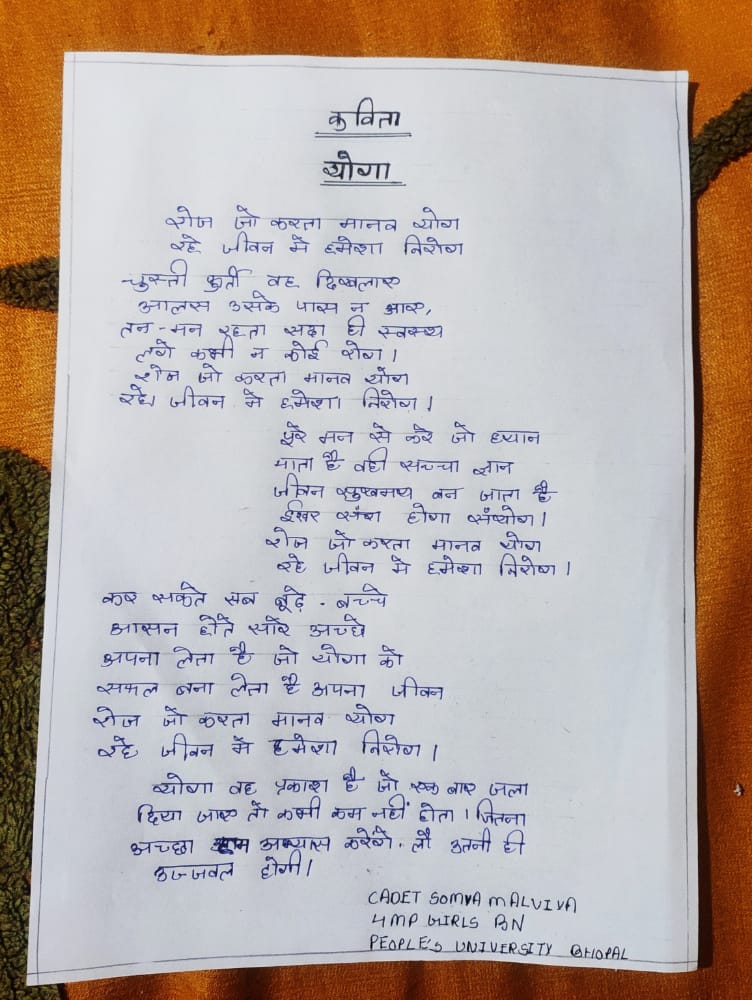 कविता
योगा
रोज जो करता मानव योग
रहे जीवन मे हमेशा निरोग
चुस्ती फुर्ती वह दिखलाए
आलस उसके पास न आए,
तन-मन रहता सदा ही स्वस्थ
लगे कभी न कोई रोग।
रोज जो करता मानव योग
रहे जीवन मे हमेशा निरोग।
पूरे मन से करे जो ध्यान
माता है वही सच्चा ज्ञान
जीवन सुखमय बन जाता है
ईश्वर संग होगा संयोग।
रोज जो करता मानव योग
रहे जीवन मे हमेशा निरोग।
कर सकते सब बूढ़े - बच्चे
आसन होते सारे अच्छे
अपना लेता है जो योगा को
सफल बना लेता है अपना जीवन
रोज जो करता मानव योग
रहे जीवन मे हमेशा निरोग।
योगा वह प्रकाश है जो एक बार जला
दिया जाए तो कभी कम नहीं होता। जितना
अच्छा अभ्यास करेंगे. लौ उतनी ही
उज्जवल होगी।
CADET SOMYA MALVIYA
4 MP GIRLS BN
PEOPLE'S UNIVERSITY BHOPAL